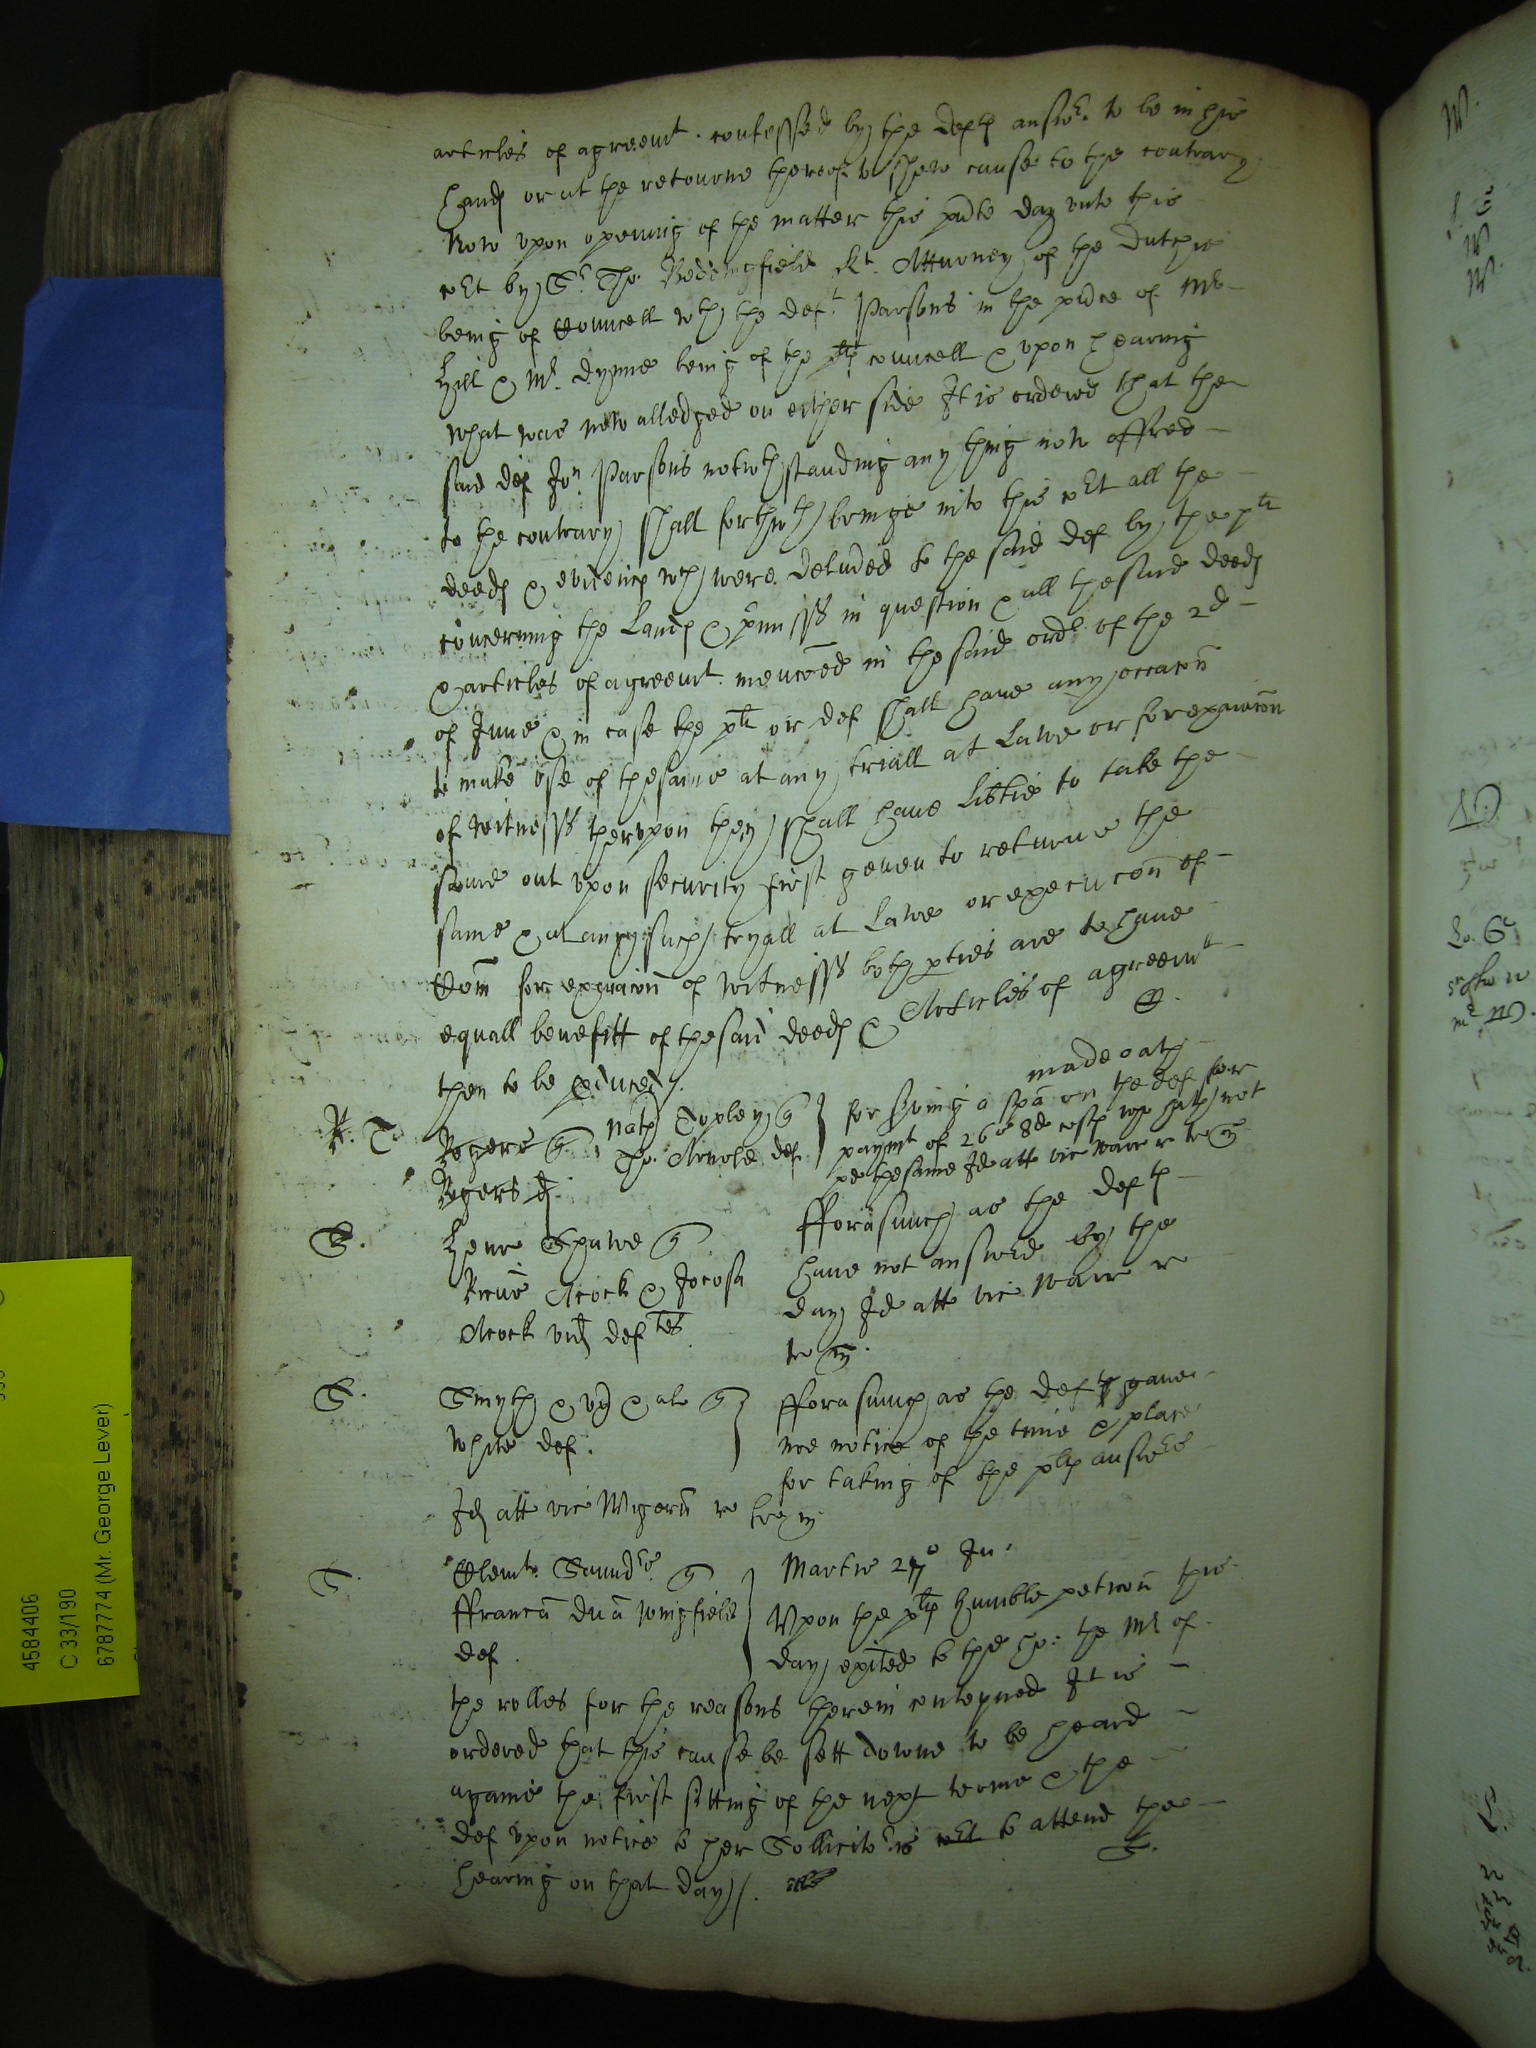 articles of agreemt. confessed by the defts answer. to be in his
hands or at the retourne thereof to shew cause to the contrary
Now upon opening of the matter this pnte day unto this
cort by Sr. Tho. Beddingfield Kt. Atturney of the Dutchie
being of Councell wth the deft. Parsons in the pnce of Mr
Hill & Mr. dynne being of the plts councell & upon hearing
what was now alledged on either side It is ordered that the
said def Jon. Parsons notwthstanding any thing now offred
to the contrary shall forthwth bringe into this cort all the
deeds & evidences wch were delivded to the said def by the plt
concerning the Lands & pmisss in question & all the said deeds
& articles of agreemt. mencoed in the said ordr of the 2d
of June & in case the plt or def shall have any occacon
to make use of thesame at any triall at Lawe or for exaiacon
of witnesss therupon they shall have libtie to take the
same out upon security first geven to returne the
same & at any such tryall at Lawe or execucon of
Com for exaiacon of witnesss both pties are to have
equall benefitt of thesaid deeds & Articles of agreemt
then to be pduced/.
C.
R. T. Rogers q Nath Copley q for sving a spa on the def for
made oath
Rogers d. Tho. Arnold def paymt of 26s 8d costs who hath not
pd thesame Id att vic warr r tre m
S. Henr Spawe q fforasmuch as the defts
Ricus Acock & Jocosa have not answed by the
Acock ux def tes. day Id att vic warr r
tre m.
S. Smyth & ux & al q fforasmuch as the deft gave
White def. noe notice of the time & place
for taking of the plts answers
Id att vic Wigorn r tre m
S. Clemt. Saundrs. q Martis 27o Ju.
ffranca Dna Wingfield Upon the plts humble peticon this
def. day exited to the ho: the Mr of
the rolles for the reasons therein conteyned It is
ordered that this cause be sett downe to be heard
againe the first sitting of the next terme & the
def upon notice to her Sollicitr. is to attend the
hearing on that day/.
S.
4584406
C 33/190
6787774 (Mr. George Lever)